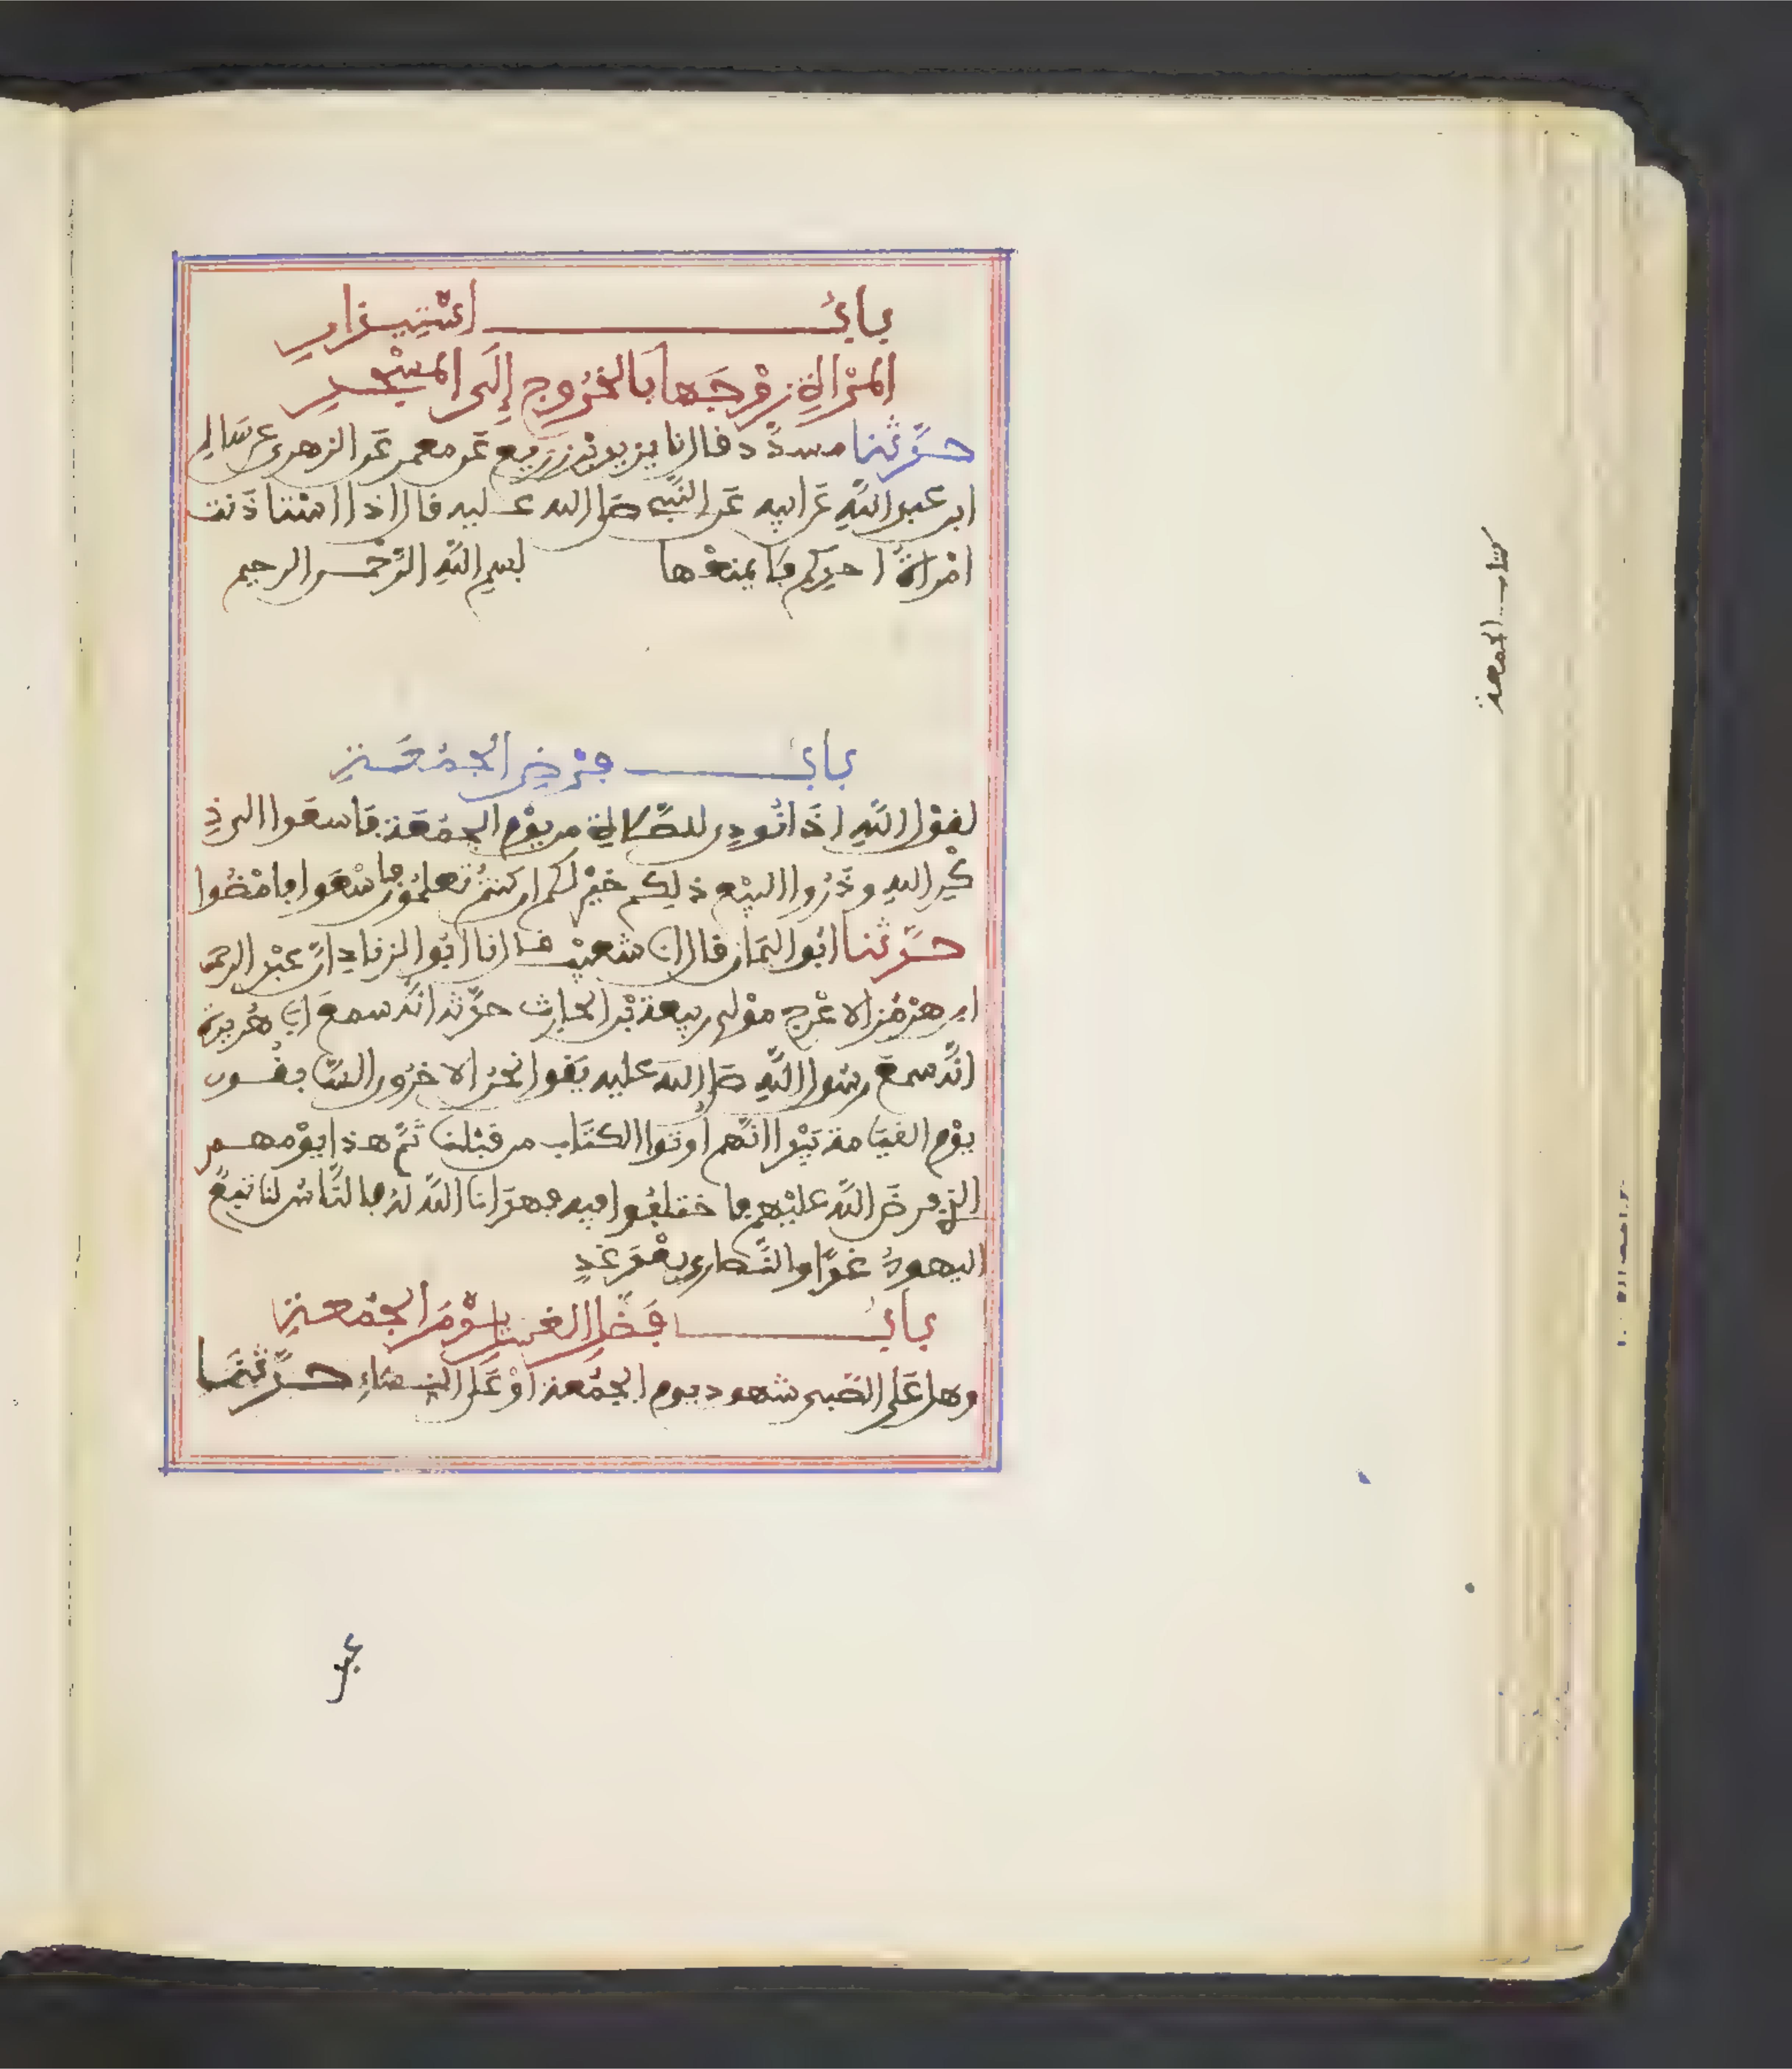 باب استيذان
المرأة زوجها بالخروج إلى المسجد
حدثنا مسدد قال نا يزيد بن زريع عن معمر عن الزهري عن سالم
ابن عبد الله عن ابيه عن النبي صلى الله عليه قال اذا استاذنت
امراة احدكم فلا يمنعها بسم الله الرحمن الرحيم
باب فرض الجمعة
لقول الله اذا نودي للصلاة من يوم الجمعة فاسعوا الى ذ
كر الله وذروا البيع ذلكم خير لكم ان كنتم تعلمون فاسعوا فامضوا
حدثنا ابو اليمان قال انا شعيب قال نا ابو الزناد ان عبد الرحمن
ابن هرمز الاعرج مولى ربيعة بن الحارث حدثه انه سمع ابي هريرة
انه سمع رسول الله صلى الله عليه يقول نحن الاخرون السابقون
يوم القيامة بيد انهم اوتوا الكتاب من قبلنا ثم هذا يومهم
الذي فرض الله عليهم فاختلفوا فيه فهدانا الله له فالناس لنا تبع
اليهود غدا والنصارى بعد غد
باب فضل الغسل يوم الجمعة
وهل على الصبي شهود يوم الجمعة او على النساء حدثنا
عبد
كتاب الجمعة